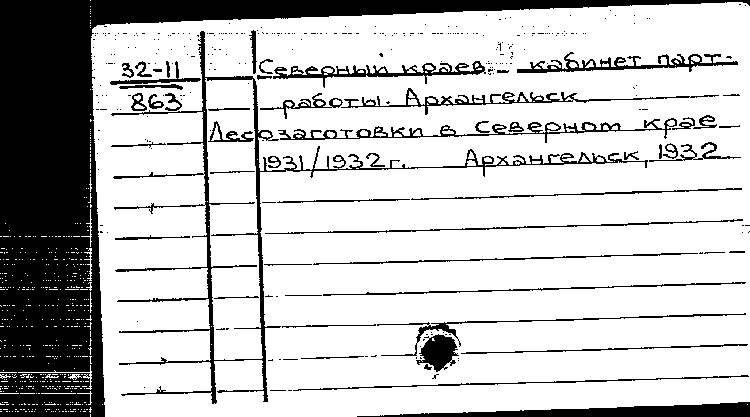 32-11
863
Северный краев. кабинет парт-
работы. Архангельск
Лесозаготовки в Северном крае
1931/1932 г. Архангельск, 1932